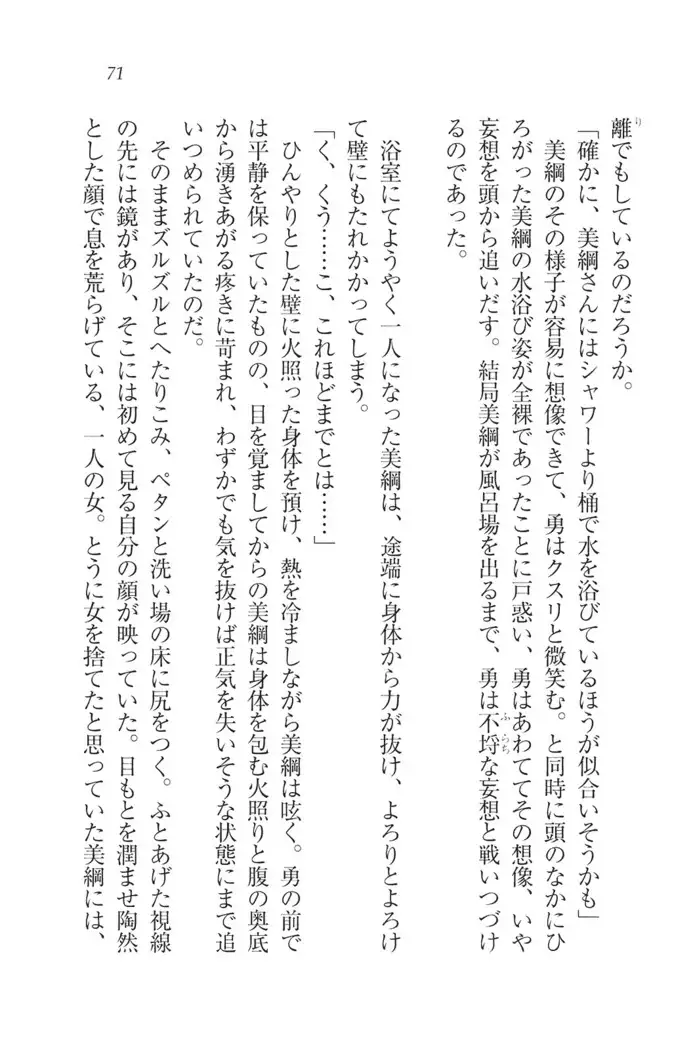 71
離でもしているのだろうか。
「確かに、美綱さんにはシャワーより桶で水を浴びているほうが似合いそうかも」
美綱のその様子が容易に想像できて、勇はクスリと微笑む。と同時に頭のなかにひ
ろがった美綱の水浴び姿が全裸であったことに戸惑い、勇はあわててその想像、いや
妄想を頭から追いだす。結局美綱が風呂場を出るまで、勇は不埒な妄想と戦いつづけ
るのであった。
浴室にてようやく一人になった美綱は、途端に身体から力が抜け、よろりとよろけ
て壁にもたれかかってしまう。
「く、くう……こ、これほどまでとは……」
ひんやりとした壁に火照った身体を預け、熱を冷ましながら美綱は呟く。勇の前で
は平静を保っていたものの、目を覚ましてからの美綱は身体を包む火照りと腹の奥底
から湧きあがる疼きに苛まれ、わずかでも気を抜けば正気を失いそうな状態にまで追
いつめられていたのだ。
そのままズルズルとへたりこみ、ペタンと洗い場の床に尻をつく。ふとあげた視線
の先には鏡があり、そこには初めて見る自分の顔が映っていた。目もとを潤ませ陶然
とした顔で息を荒らげている、一人の女。とうに女を捨てたと思っていた美綱には、